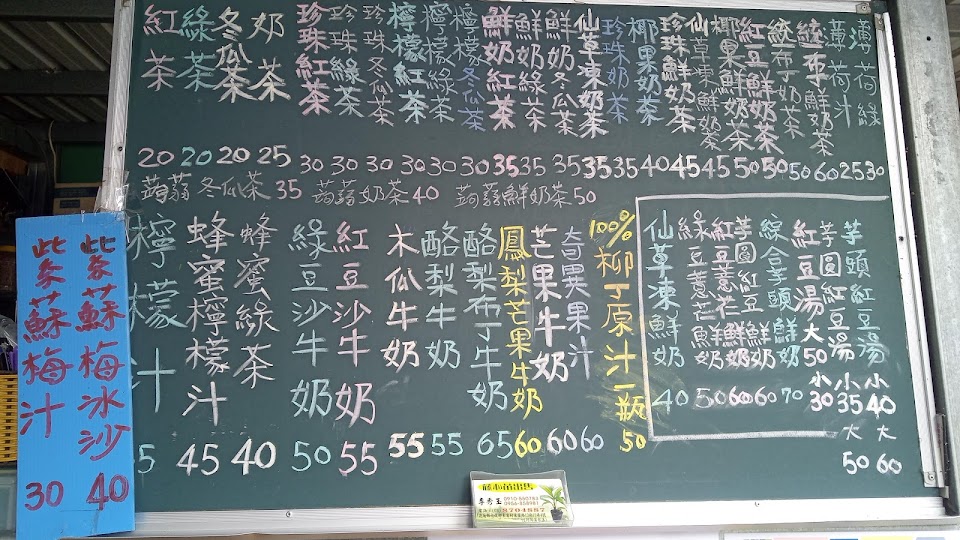 紅茶 20
綠茶 20
冬瓜茶 20
奶茶 25
珍珠紅茶 30
珍珠綠茶 30
珍珠冬瓜茶 30
檸檬紅茶 30
檸檬綠茶 30
檸檬冬瓜茶 30
鮮奶紅茶 35
鮮奶綠茶 35
鮮奶冬瓜茶 35
仙草凍奶茶 35
珍珠奶茶 35
椰果奶茶 40
珍珠鮮奶茶 45
仙草凍鮮奶茶 45
椰果鮮奶茶 50
紅豆鮮奶茶 50
統一布丁奶茶 50
統一布丁鮮奶茶 60
薄荷汁 25
薄荷綠 30
蒟蒻冬瓜茶 35
蒟蒻奶茶 40
蒟蒻鮮奶茶 50
檸檬汁 5
蜂蜜檸檬汁 45
蜂蜜綠茶 40
綠豆沙牛奶 50
紅豆沙牛奶 55
木瓜牛奶 55
酪梨牛奶 55
酪梨布丁牛奶 65
鳳梨芒果牛奶 60
芒果牛奶 60
奇異果汁 60
100%柳丁原汁一瓶 50
仙草凍鮮奶 40
綠豆薏芒鮮奶 50
紅豆薏芒鮮奶 60
芋圓紅豆鮮奶 60
綜合芋頭鮮奶 70
紅豆湯大50 小30
芋圓紅豆湯 小35 大50
芋頭紅豆湯 小40 大60
紫蘇梅汁 30
紫蘇梅冰沙 40
李秀玉
8704557